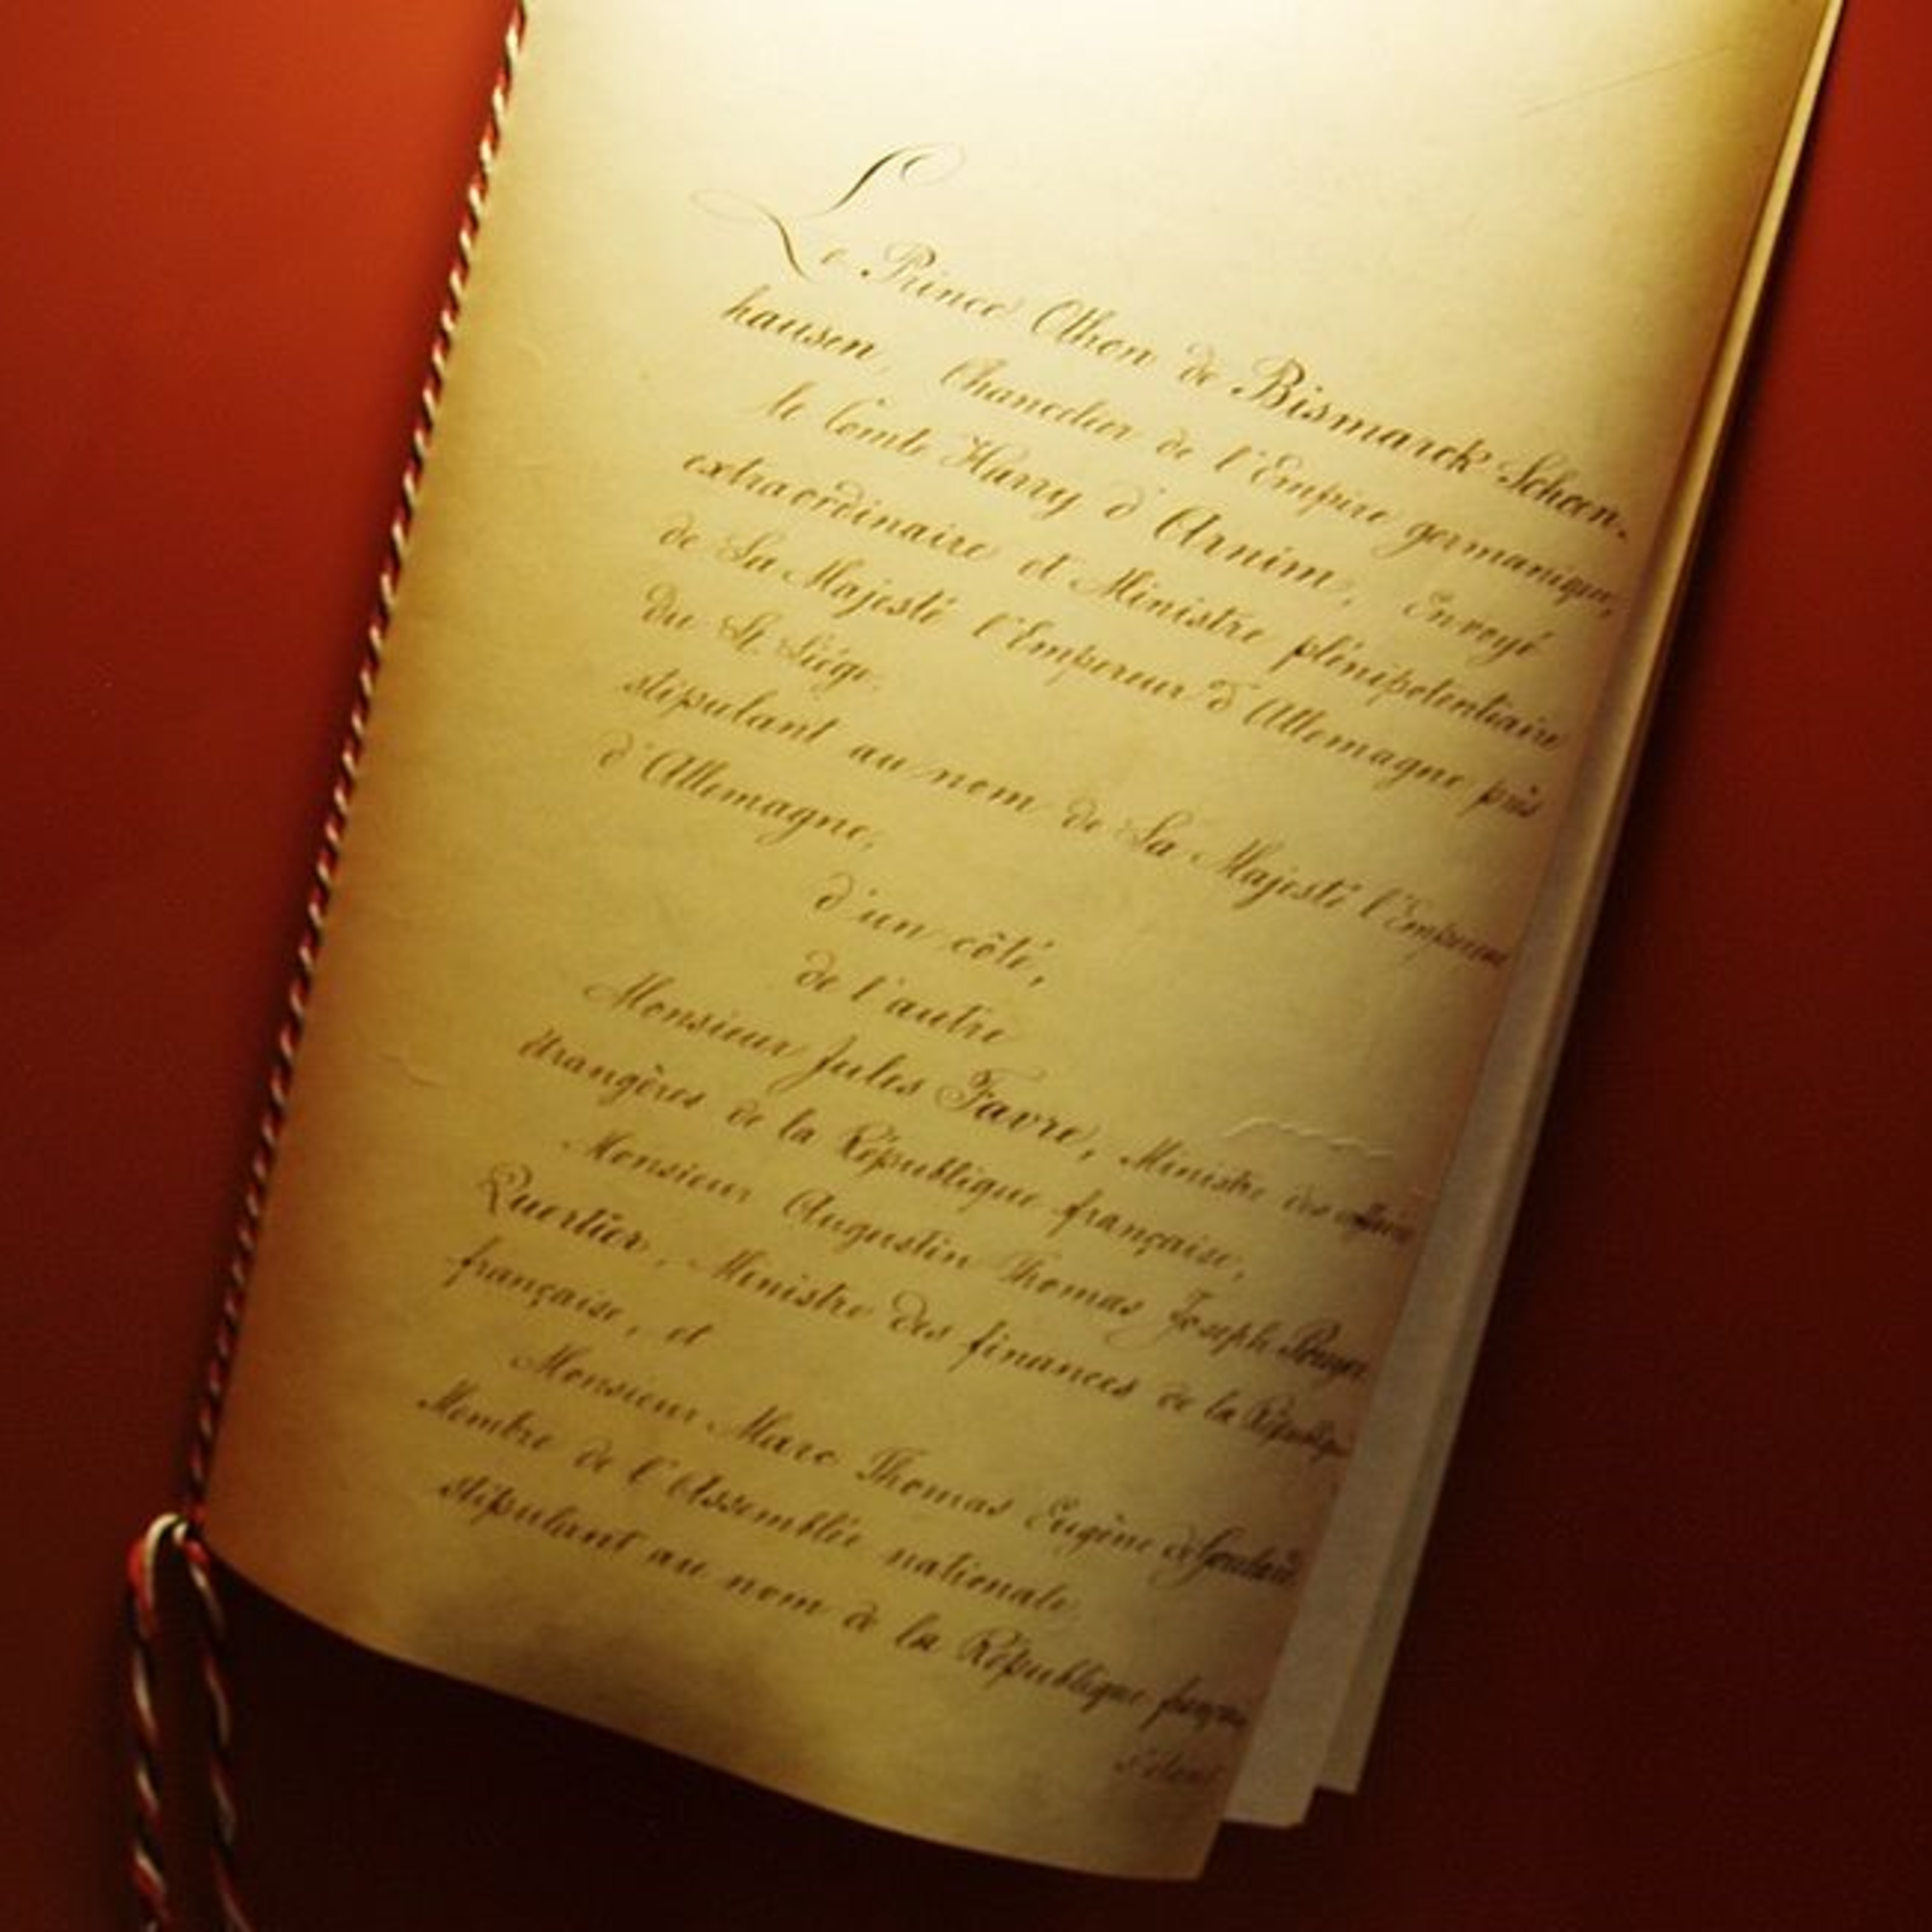 Le Prince Othon de Bismarck-Schoen-
hausen, Chancelier de l'Empire germanique,
le Comte Harry d'Arnim, Envoyé
extraordinaire et Ministre plénipotentiaire
de Sa Majesté l'Empereur d'Allemagne près
du St. Siége,
stipulant au nom de Sa Majesté l'Empereur
d'Allemagne,
d'un côté,
de l'autre
Monsieur Jules Favre, Ministre des affaires
étrangères de la République française,
Monsieur Augustin Thomas Joseph Pouyer
Quertier, Ministre des finances de la République
française, et
Monsieur Marc Thomas Eugène de Goulard
Membre de l'Assemblée nationale,
stipulant au nom de la République française
s'étant